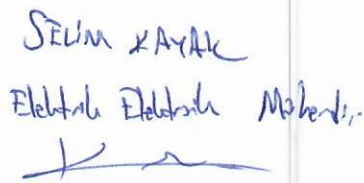 SELİM KAYAK
Elektrik Elektronik Mühendisi